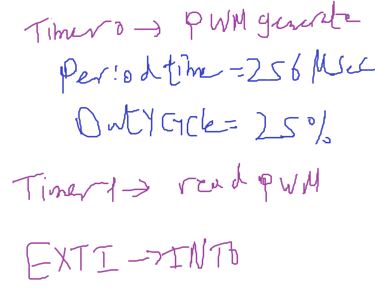 Timer0 → PWM generate
Period time = 256 Msec
Duty Cycle = 25%
Timer1 → read PWM
EXTI → INT0